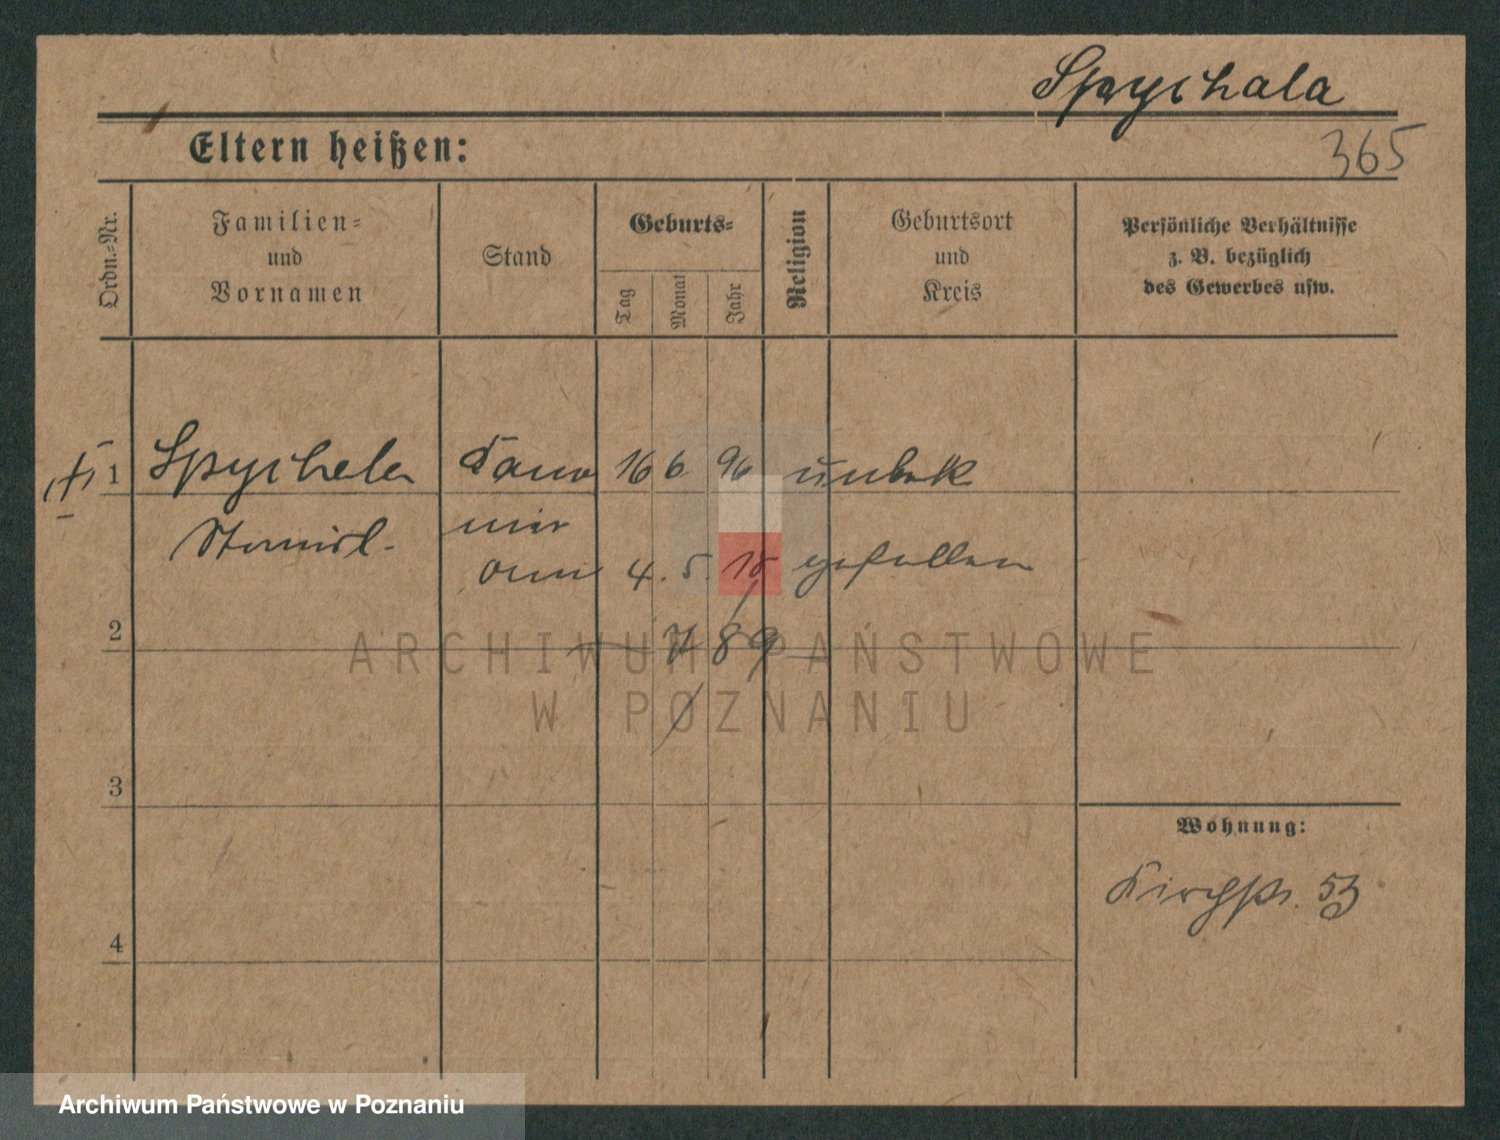 Spychala
Eltern heißen:
365
Ordn.-Nr.
Familien-
und
Vornamen
Stand
Geburts-
Tag
Monat
Jahr
Religion
Geburtsort
und
Kreis
Persönliche Verhältnisse
z. B. bezüglich
des Gewerbes usw.
1
Spychala
16 6 96 unbek
Stanisl.
4. 5. 18 gefallen
2
7 89
ARCHIWUM PAŃSTWOWE
W POZNANIU
3
Wohnung:
Kirchstr. 53
4
Archiwum Państwowe w Poznaniu